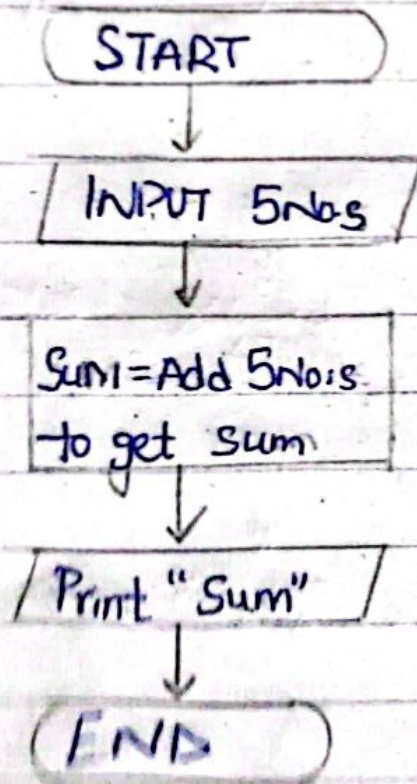 START
INPUT 5Nos
Sum=Add 5No:s
to get sum
Print "Sum"
END